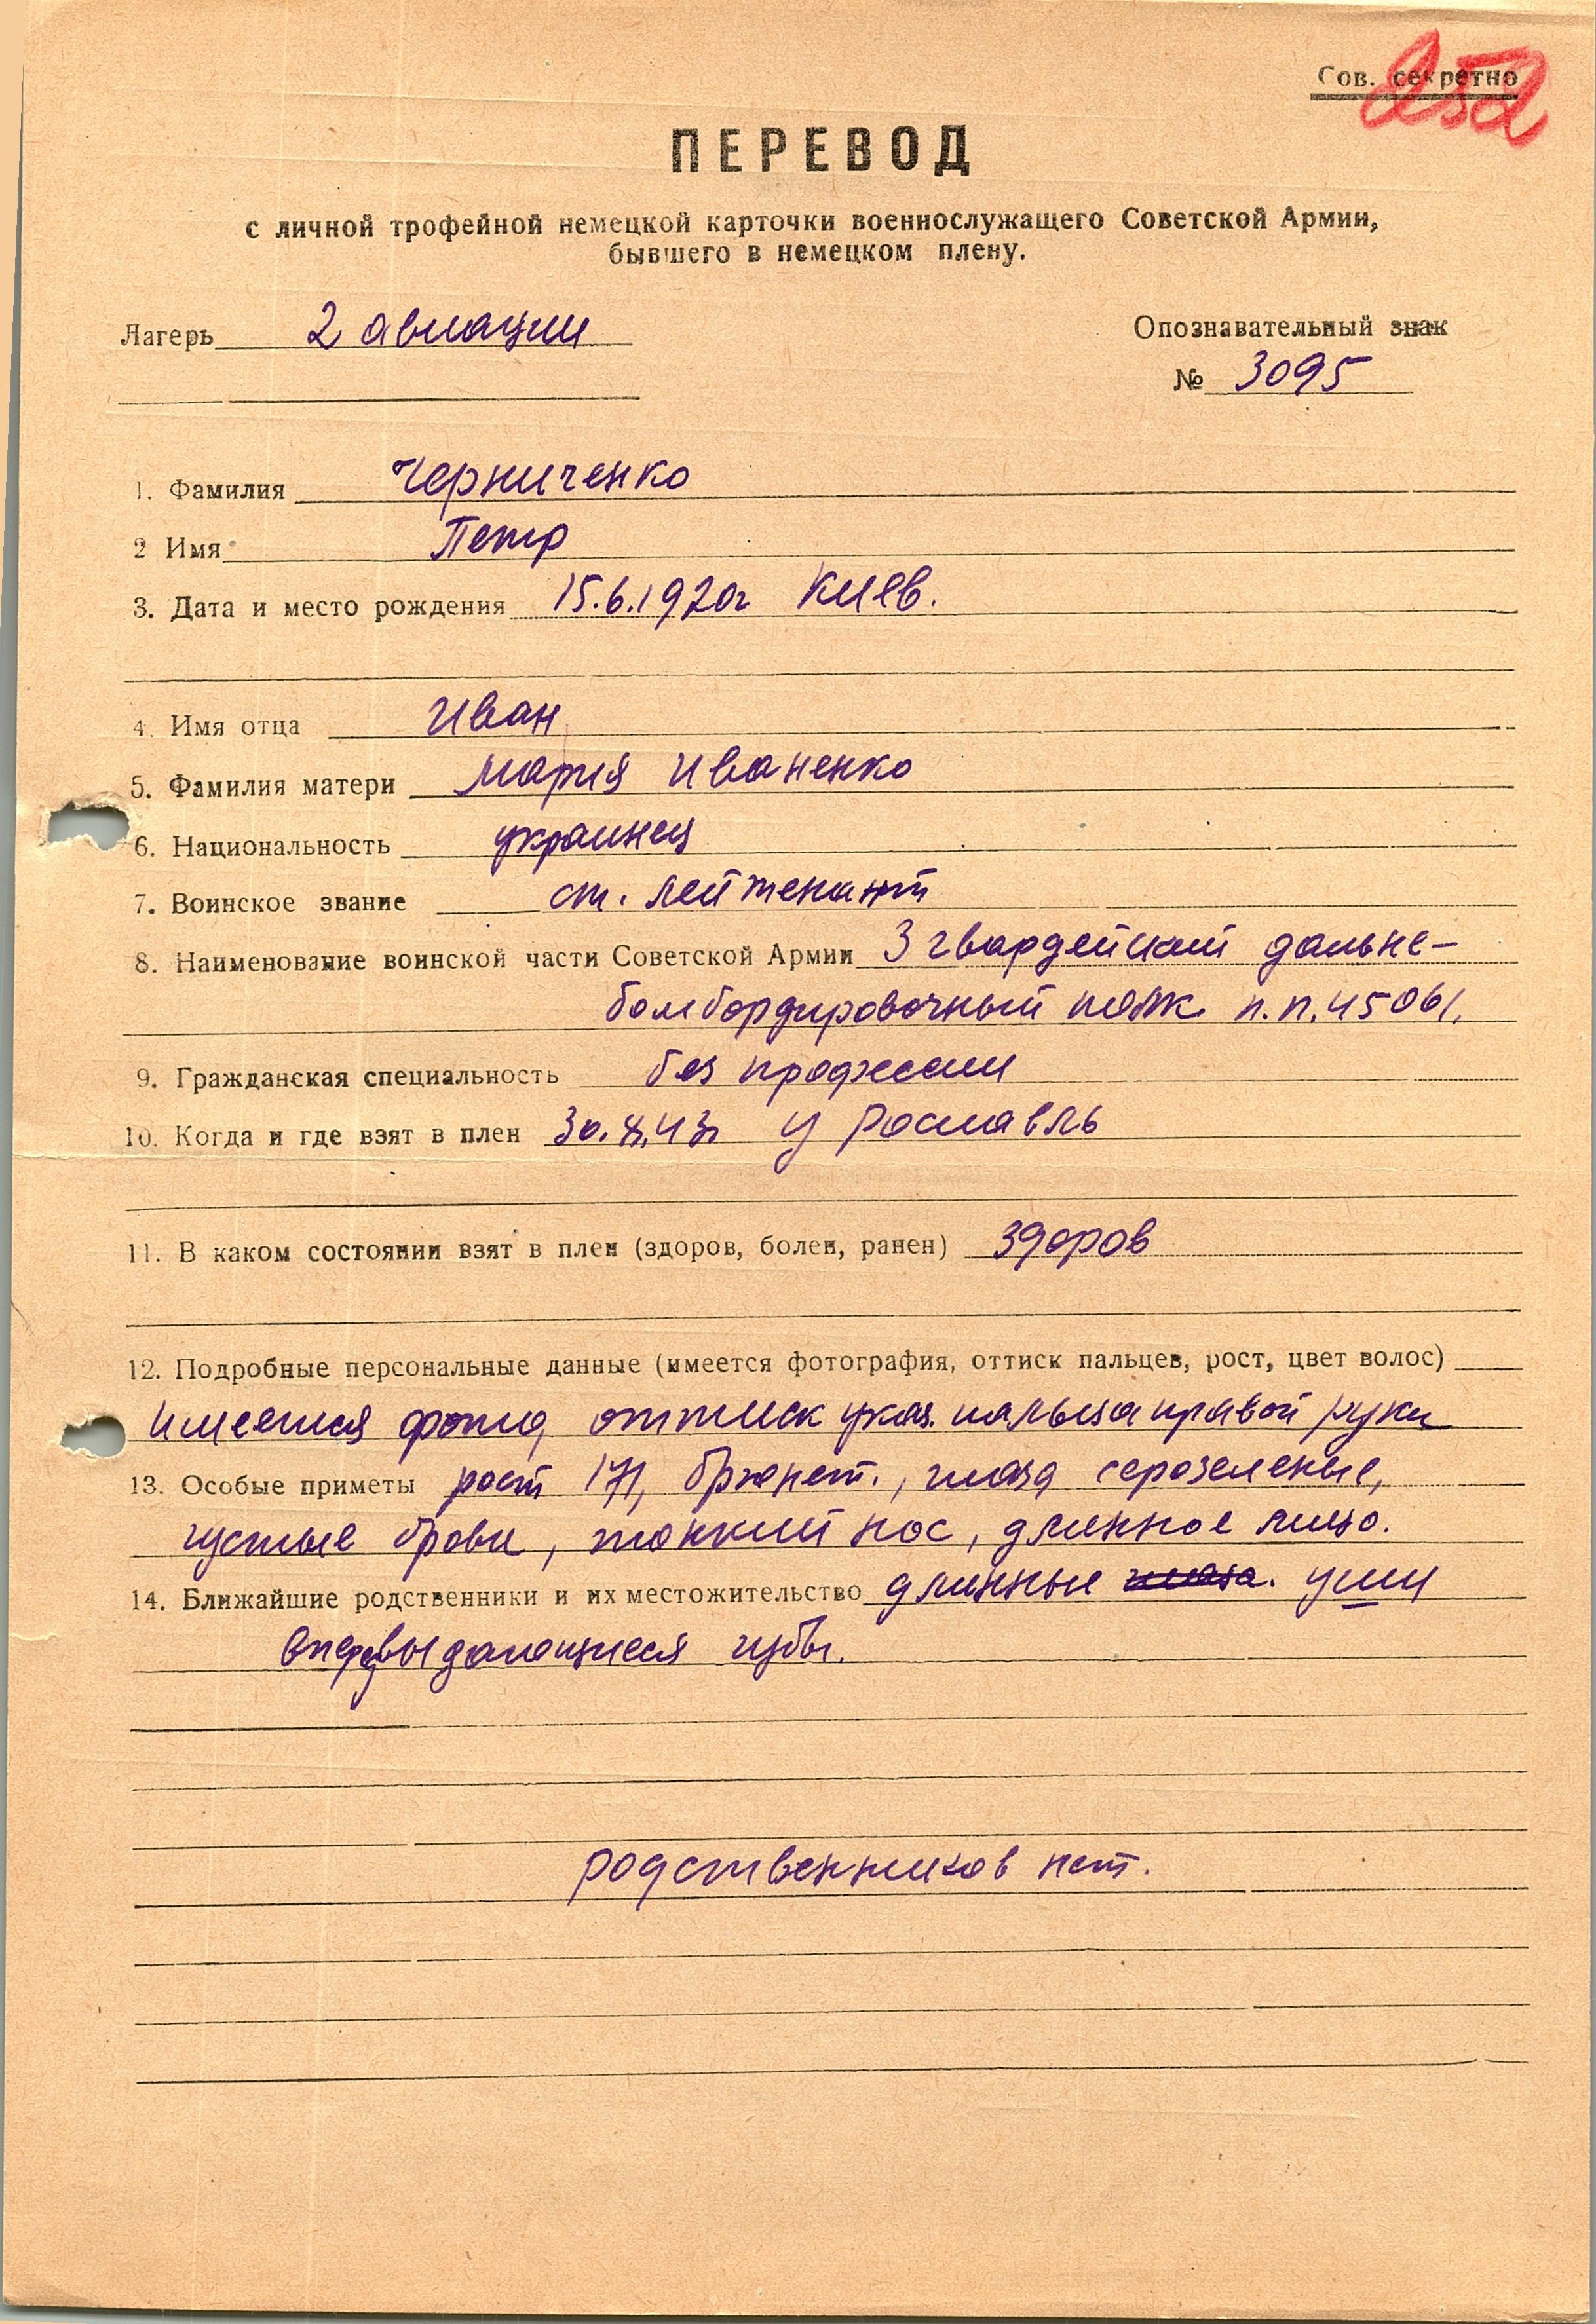 Сов. секретно
252
ПЕРЕВОД
с личной трофейной немецкой карточки военнослужащего Советской Армии,
бывшего в немецком плену.
Лагерь 2 авиации
Опознавательный знак
№ 3095
1. Фамилия Черниченко
2 Имя Петр
3. Дата и место рождения 15.6.1920г Киев.
4. Имя отца Иван
5. Фамилия матери Мария Иваненко
6. Национальность украинец
7. Воинское звание ст. лейтенант
8. Наименование воинской части Советской Армии 3 гвардейский дальне-
бомбордировочный полк п.п. 45061.
9. Гражданская специальность без профессии
10. Когда и где взят в плен у Рославль
11. В каком состоянии взят в плен (здоров, болен, ранен) здоров
12. Подробные персональные данные (имеется фотография, оттиск пальцев, рост, цвет волос)
имеется фото, оттиск указ. пальца правой руки
13. Особые приметы рост 171, брюнет., глаза серозеленые,
густые брови, тонкий нос, длинное лицо.
14. Ближайшие родственники и их местожительство длинные глаза. уши
впередвыдающиеся губы.
родственников нет.